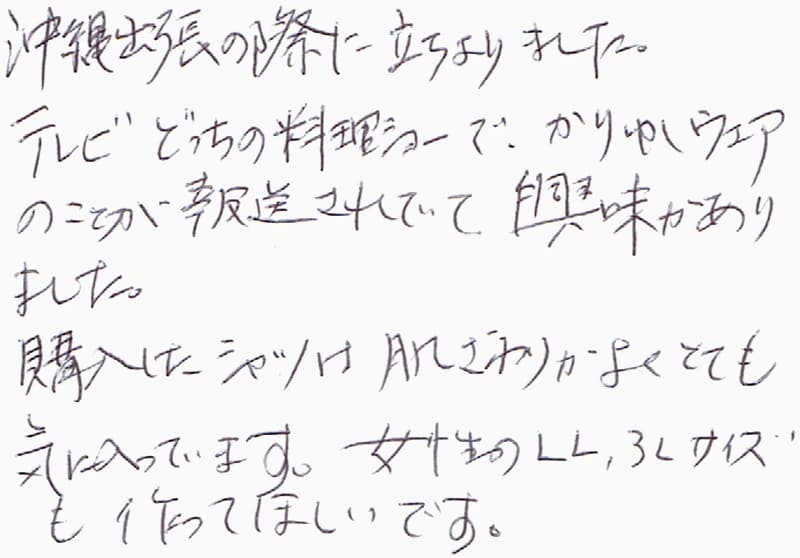 沖縄出張の際に立ちよりました。
テレビどっちの料理ショーで、かりゆしウェア
のことが報送されていて興味があり
ました。
購入したシャツは肌ざわりがよくとても
気に入っています。女性のLL,3Lサイズ
も作ってほしいです。